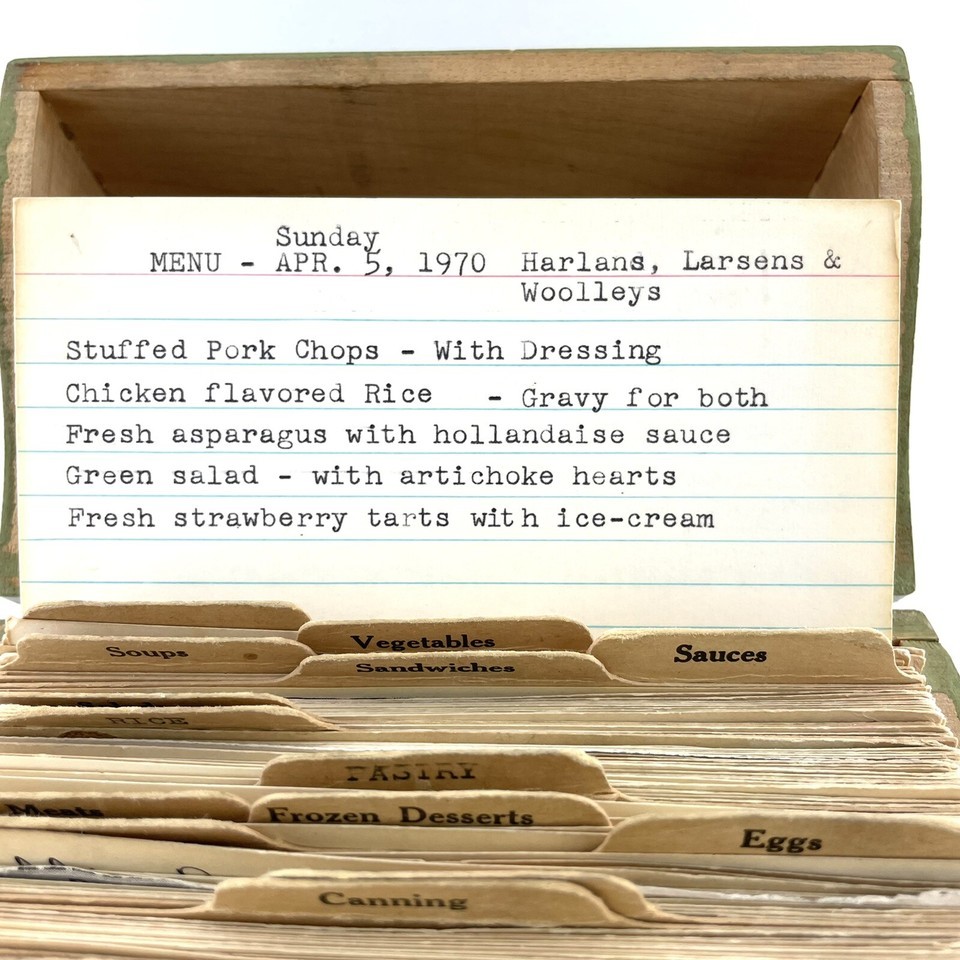 Sunday
MENU - APR. 5, 1970 Harlans, Larsens &
Woolleys
Stuffed Pork Chops - With Dressing
Chicken flavored Rice - Gravy for both
Fresh asparagus with hollandaise sauce
Green salad - with artichoke hearts
Fresh strawberry tarts with ice-cream
Vegetables
Soups
Sauces
Sandwiches
RICE
PASTRY
Meats
Frozen Desserts
Eggs
Canning